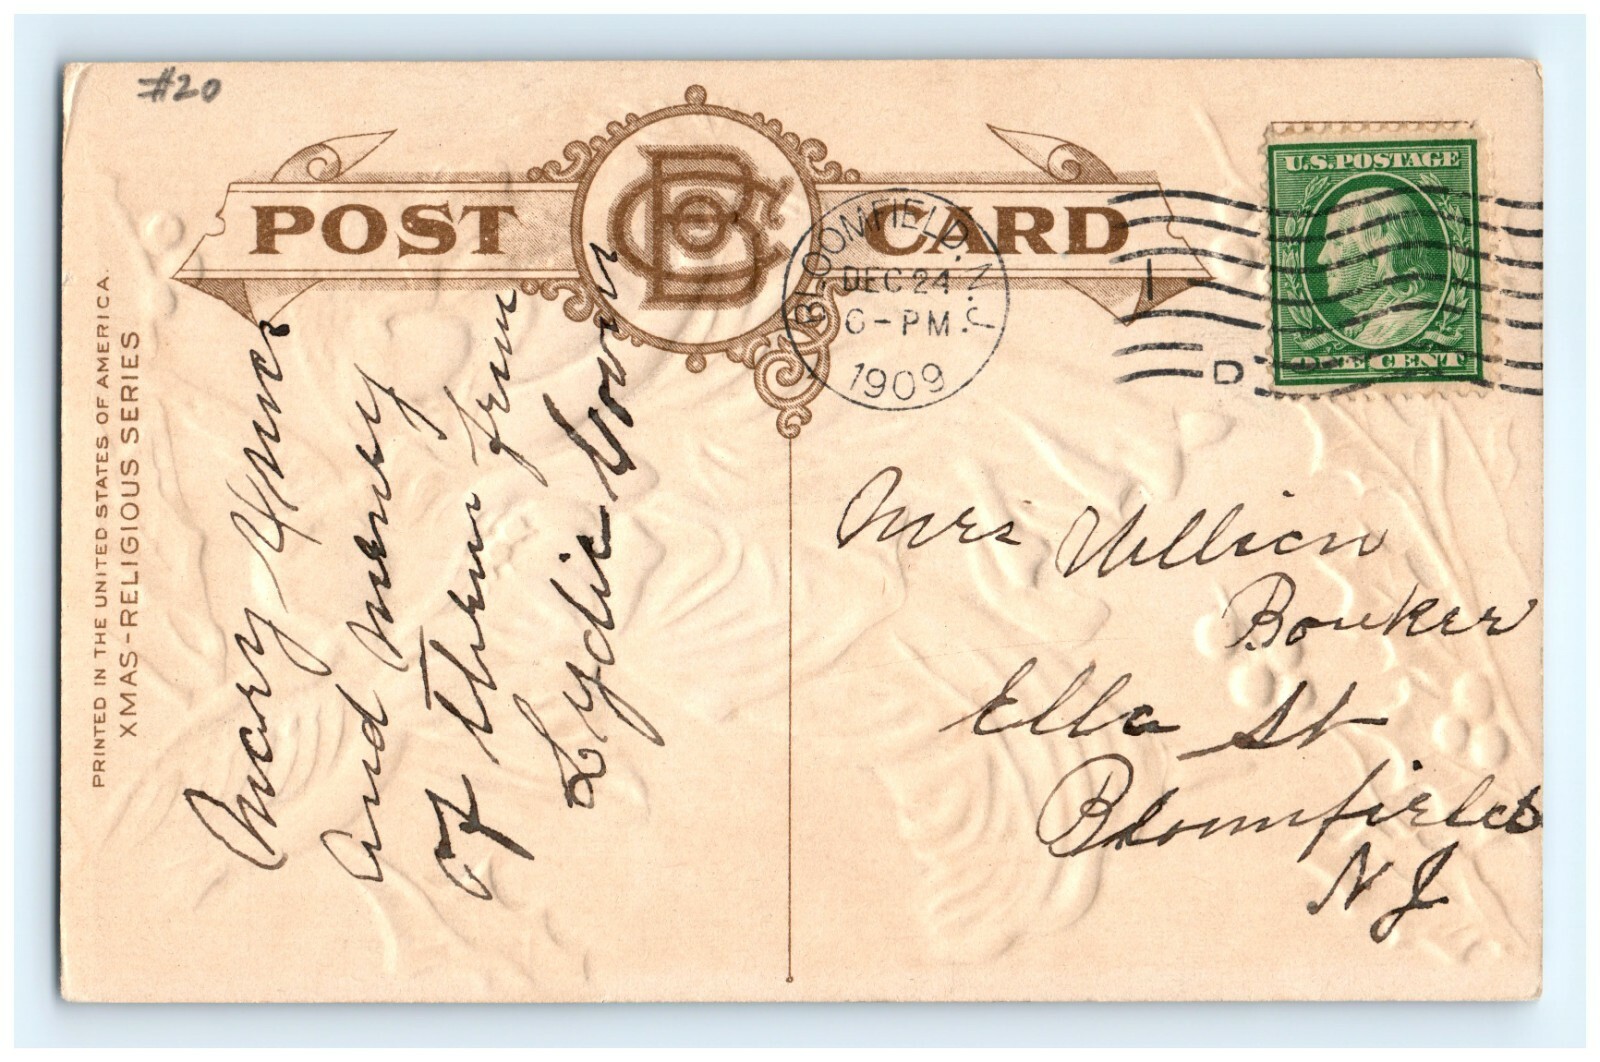 #20
POST CARD
BLOOMFIELD, N.J.
DEC 24
6-PM
1909
1
D
U.S. POSTAGE
ONE CENT
PRINTED IN THE UNITED STATES OF AMERICA.
XMAS-RELIGIOUS SERIES
Mary Xmas
and meney
of them from
Lydie
Mrs Willian
Bouker
Ella St
Bloomfield
N J